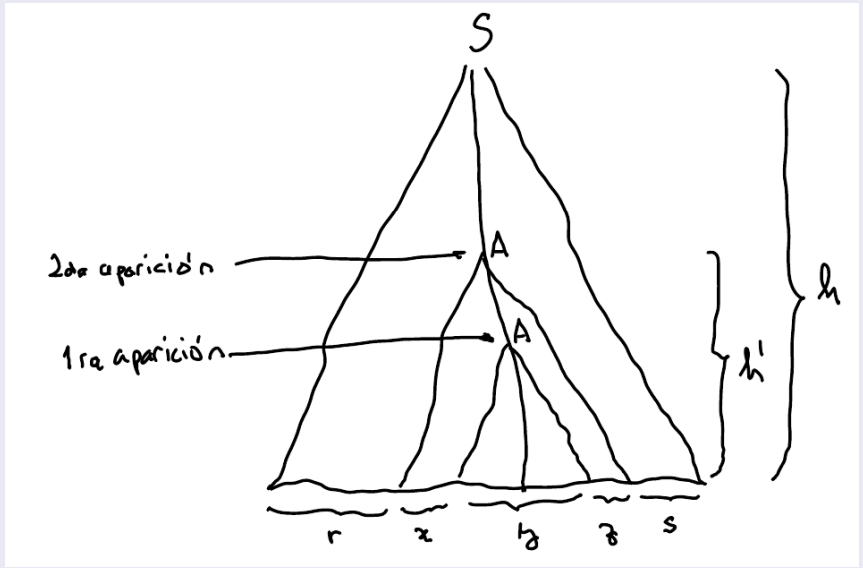 S
A
2da aparición
h
A
1ra aparición
h'
r x y z s